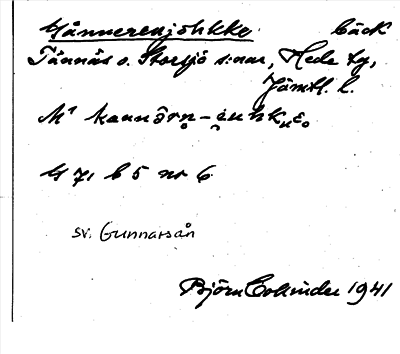 Gånnerenjohkke bäck
Tännäs o. Storsjö s:nar, Hede tg,
Jämtl. l.
G 7, b 5 nr 6
sv. Gunnarsån
Björn Collinder 1941